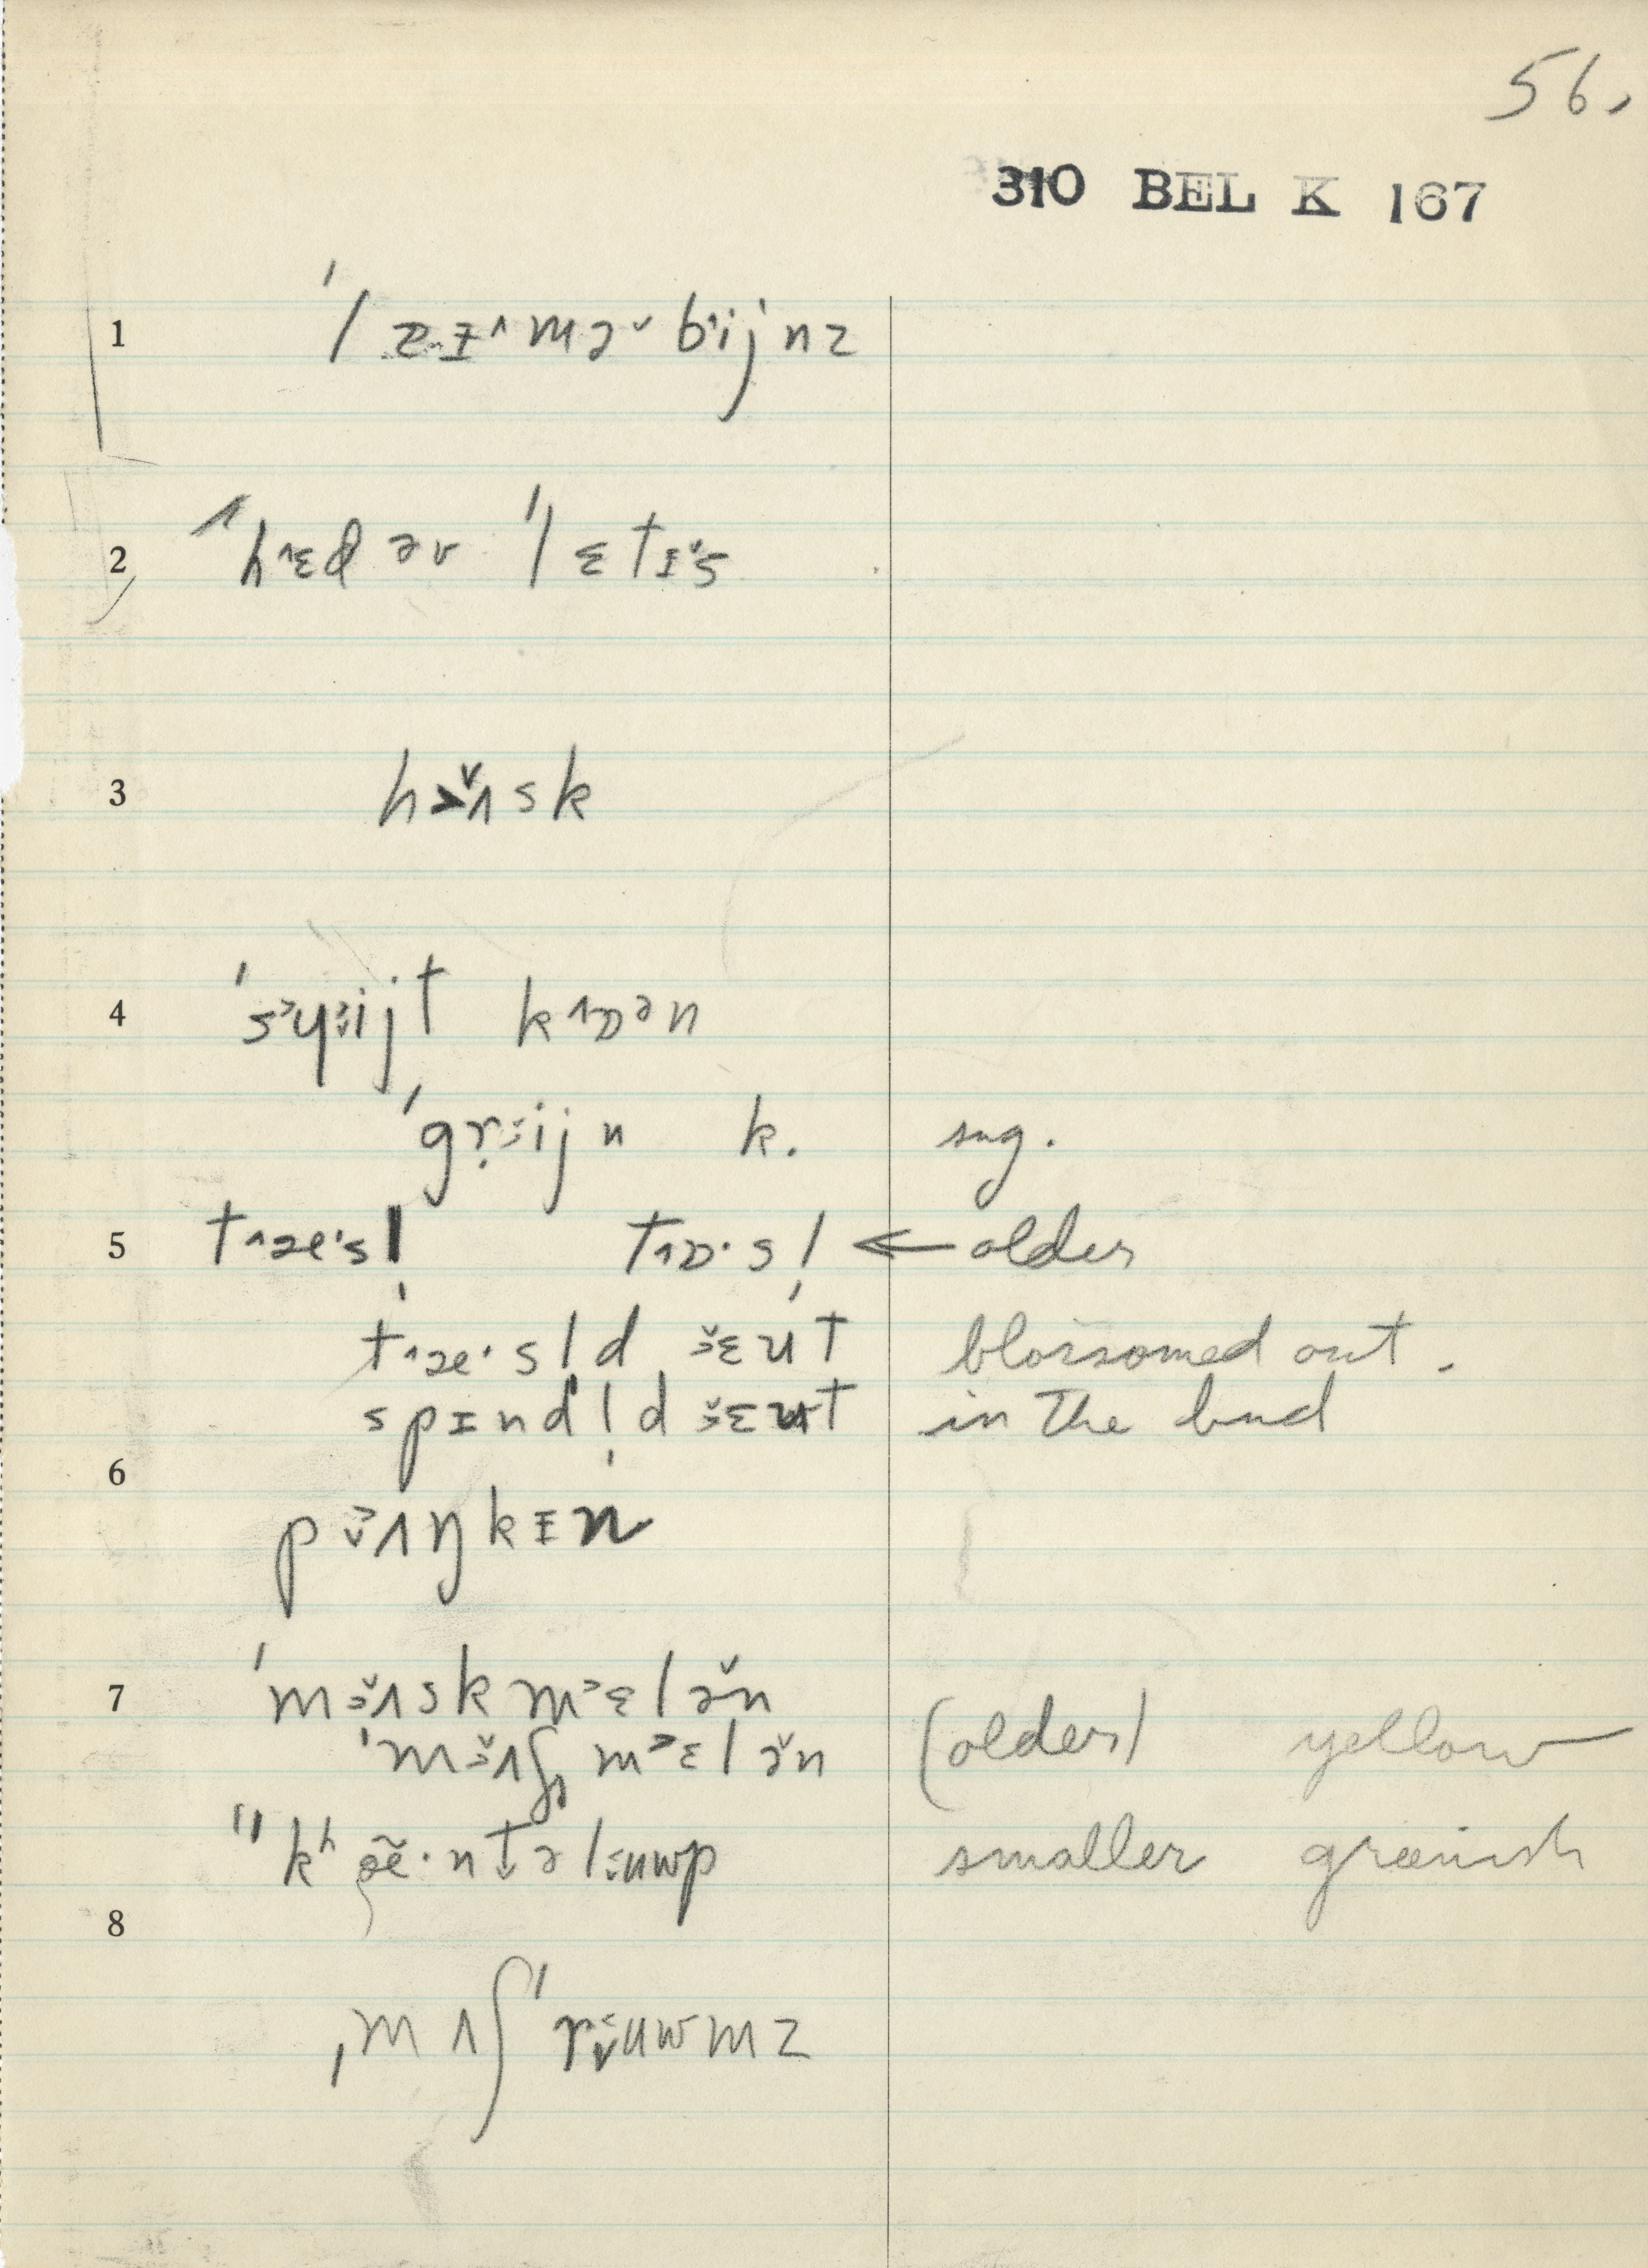 56.
310 BEL K 167
1 ˈlæɪ˄mə˅bijnz
2 ˈhɛd əv ˈlɛtɪs
3 hʌsk
4 ˈswijt kɒən
ˈgrijn k. sng.
5 tæˑsl̩ tɒˑsl̩ ← older
tæˑsl̩d ɛut blossomed out.
spɪndl̩d ɛut in the bud
6
pʌŋkɪn
7 ˈmʌskmɛlən
ˈmʌʃmɛlən (older) yellow
ˈˈkʰæ̃ˑntəluwp smaller greenish
8
ˌmʌʃˈruwmz